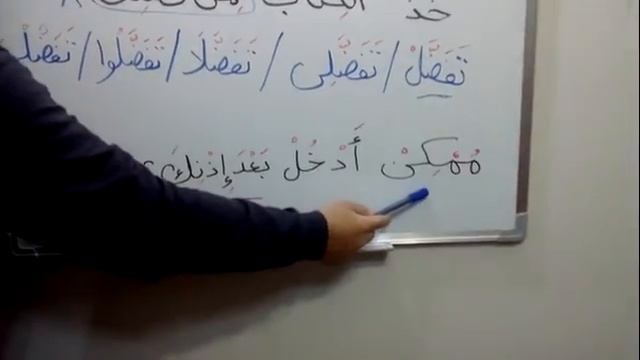 خذ الكتاب من
تَفَضَّلْ / تَفَضَّلِى / تَفَضَّلَا / تَفَضَّلُوا /
مُمْكِنْ أَدْخُلْ بَعْدَ إِذْنِكَ